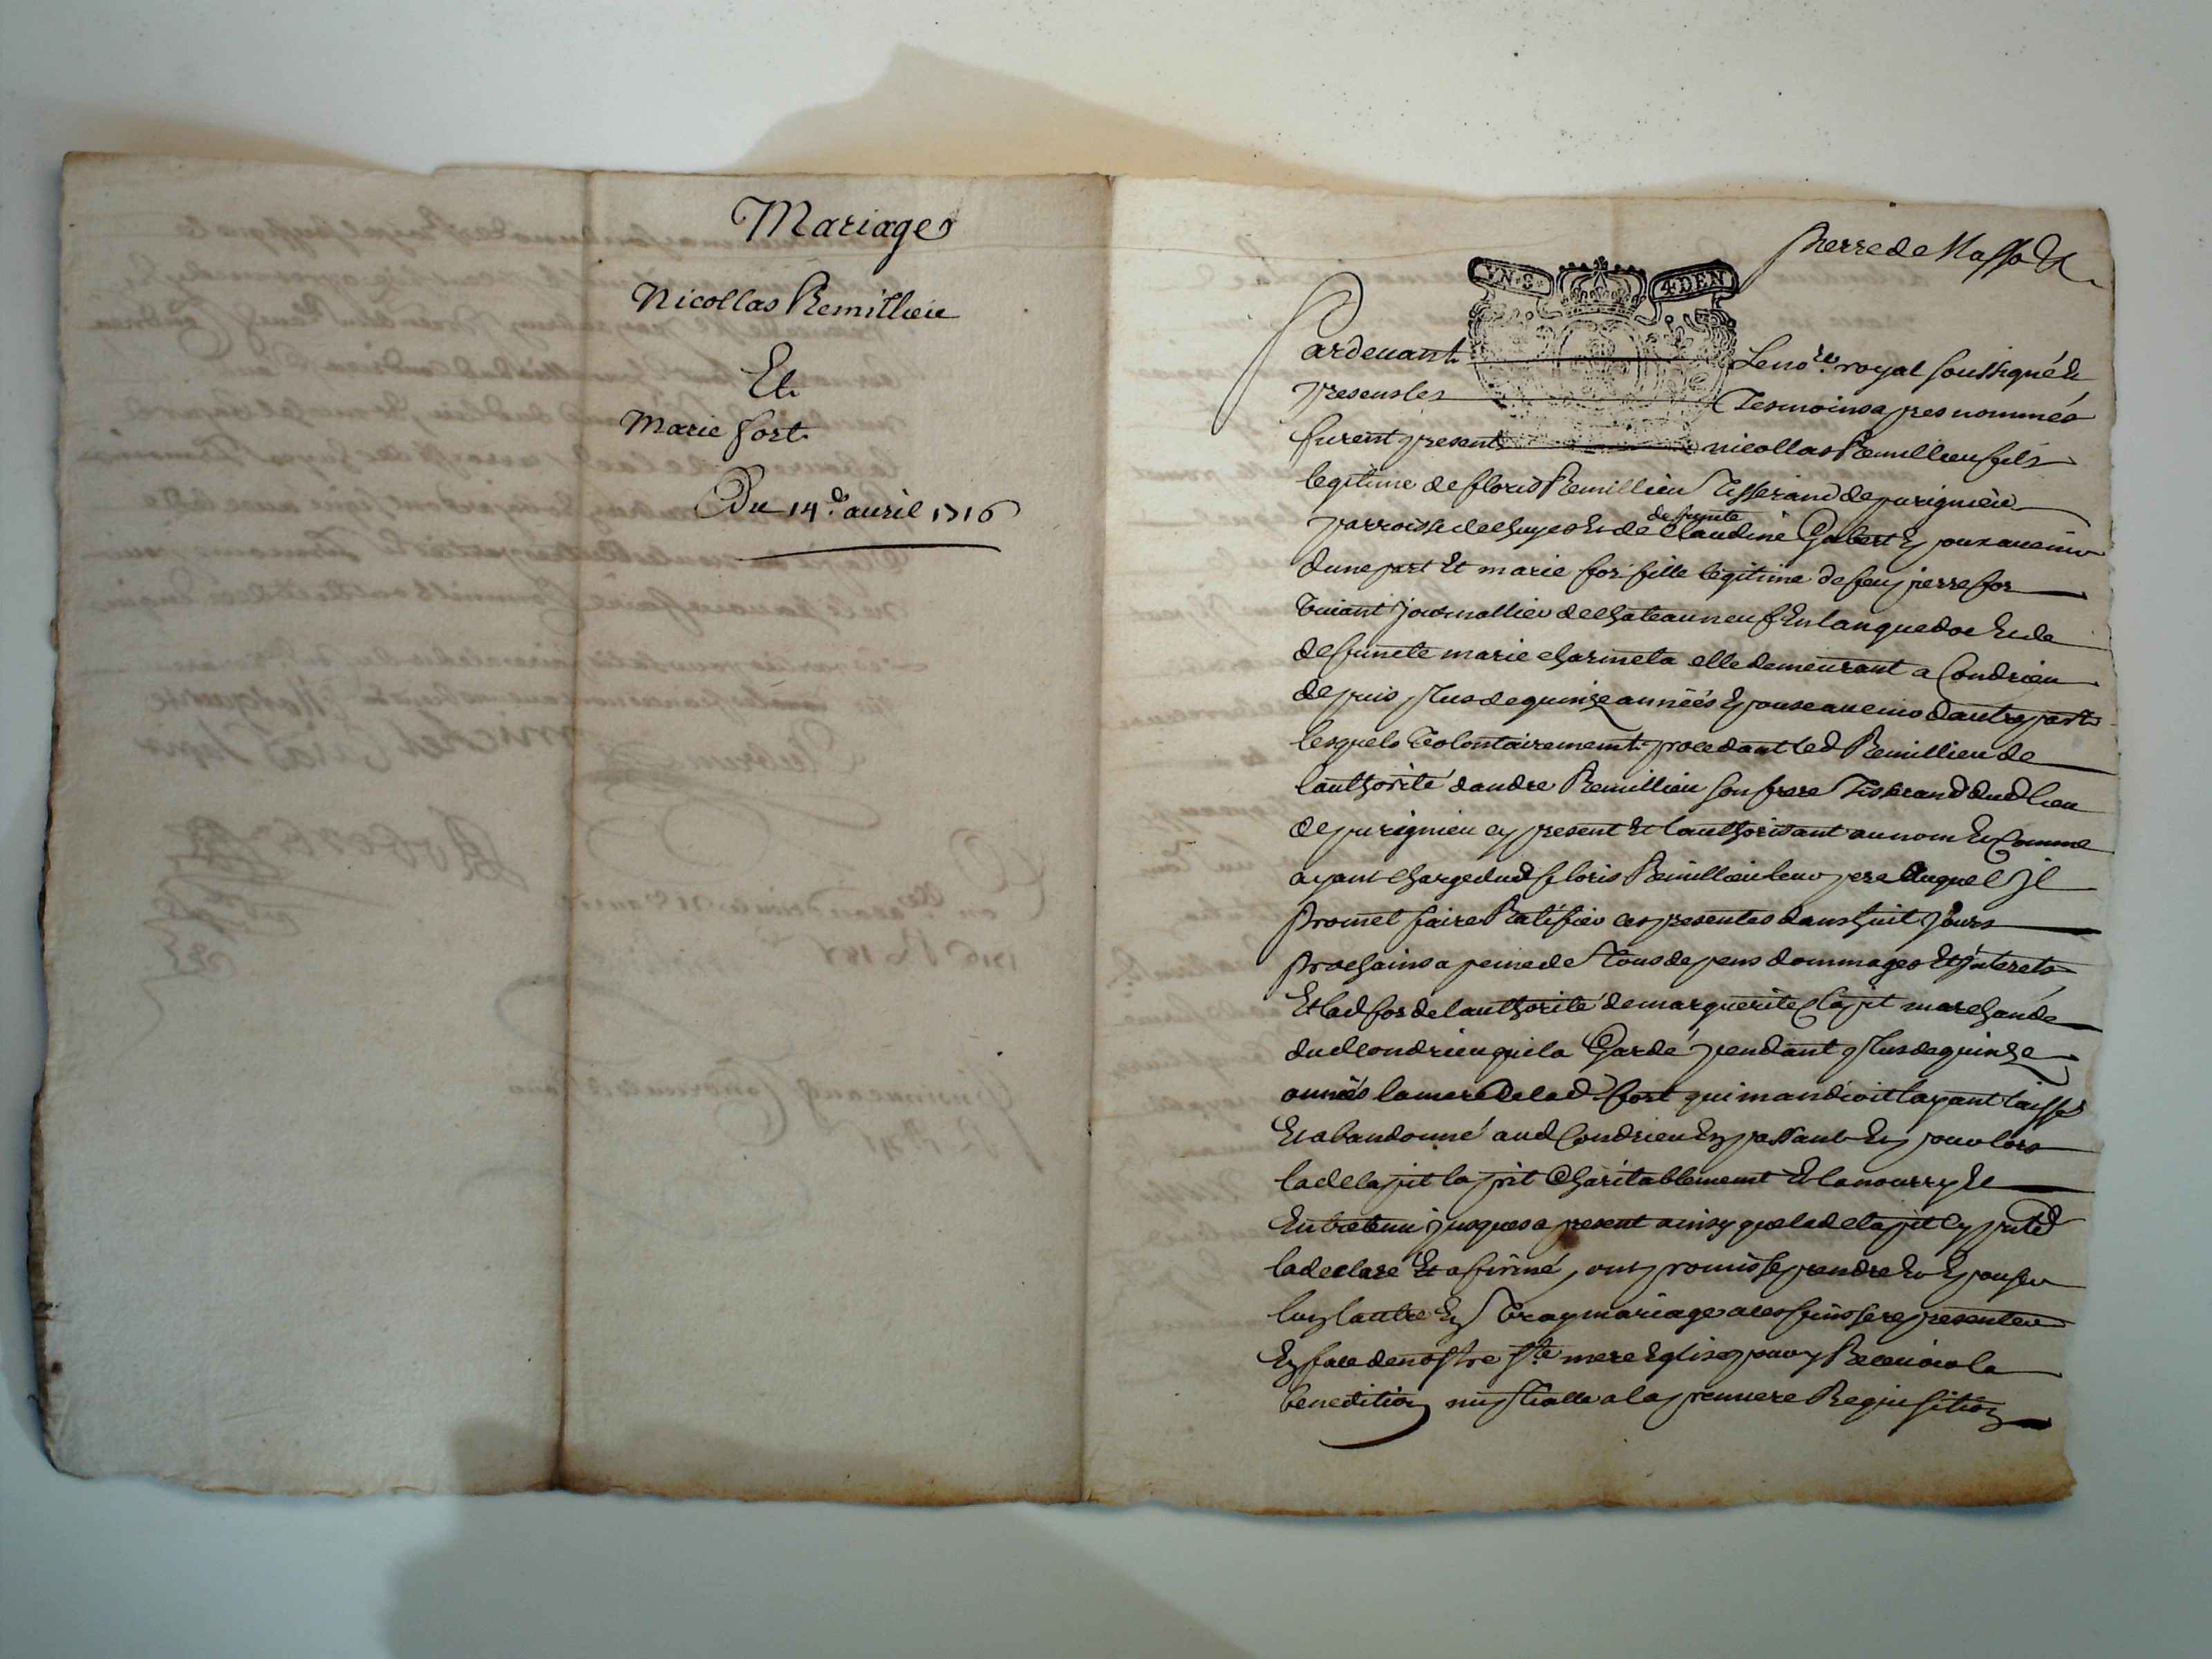 Mariage
Nicollas Remillieu
Et
Marie fort
Du 14e. avril 1716
pierre de Massod
YN.S. 4.DEN
Pardevant Le nore. royal soussigné &
presens les Tesmoins apres nommés
furent present nicollas Remillieu fils
legitime de floris Remillieu Tisserand de purignieu
defunte
parroisse de chuyes & de Claudine Gabert Epoux avenir
dune part Et marie for fille legitime de feu pierre for
vivant journallier de chateauneuf En languedoc & de
deffuncte marie charmeta elle demeurant a Condrieu
depuis plus de quinze années Epouse avenir dautre part
lesquels volontairement procedant led Remillieu de
lauthorité dandre Remillieu son frere Tisserand dud lieu
de purignieu cy present Et lauthorisant au nom & Comme
ayant charge dud floris Remillieu leur pere duquel Jl
promet faire Ratifier ces presentes dans huit Jours
prochains a peine de Tous depens dommages Et Jnterets
Et lad for de lauthorité de marguerite Clapit marchande
dud Condrieu qui la Gardé pendant plus de quinze
années la mere de lad fort qui mandioit layant laissé
Et abandonné aud Condrieu En passant & pour lors
lad clapit la prit Charitablement & la nourry &
Entretenu jusques a present ainsy que lad clapit cy pnte
la declaré Et affirmé, ont promis se prendre & Epouser
lun lautre En vray mariage a ces fins se representer
En face de nostre Ste mere Eglise pour y Recevoir la
benedition nuptialle a la premiere Requisition